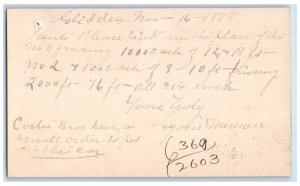 Glidden Nov 16-1888
Gents Please Send in the place of the
No 2 fencing 1000 each of 12 &
No 2 & 500 each of 8-10 fencing
2000 ft 16 ft all six inch
Yours Truly
Curtis Bros have a
small order to put
in this car
369
2603